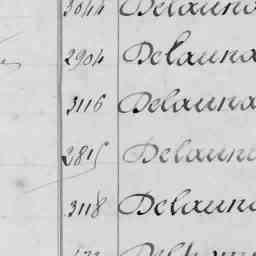 3044 Delauna
2904 Delauna
3116 Delauna
2815 Delauna
3118 Delauna